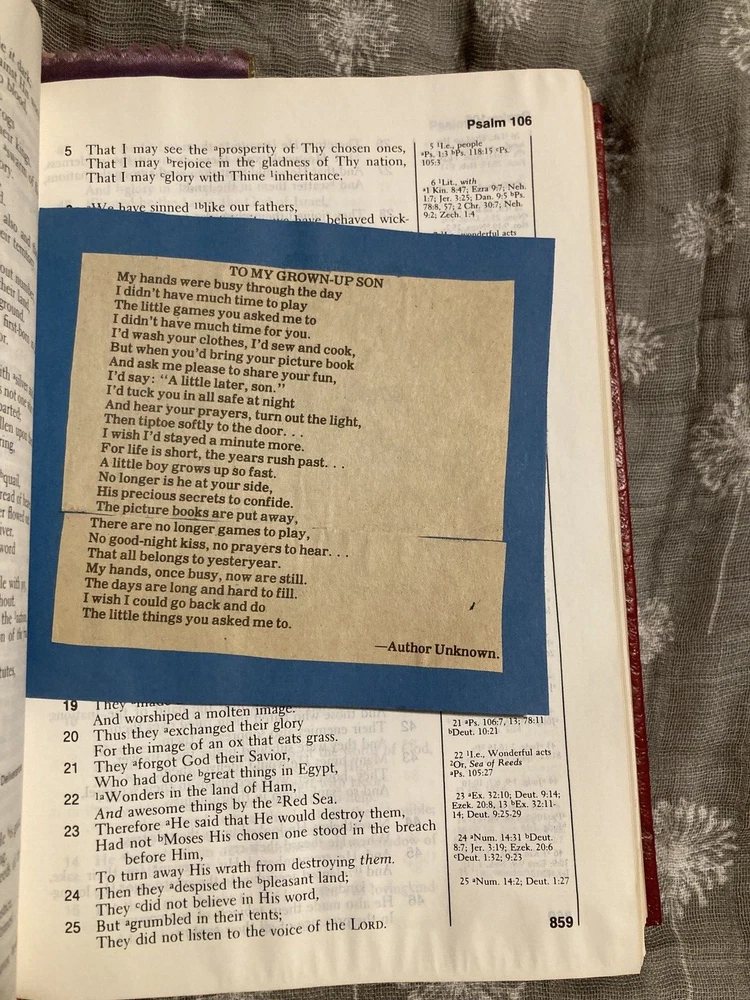 Psalm 106
5 That I may see the ᵃprosperity of Thy chosen ones,
That I may ᵇrejoice in the gladness of Thy nation,
That I may ᶜglory with Thine ¹inheritance.
ᵃWe have sinned ¹ᵇlike our fathers,
have behaved wick-
5 ¹I.e., people
ᵃPs. 1:3 ᵇPs. 118:15 ᶜPs.
105:3
6 ¹Lit., with
ᵃ1 Kin. 8:47; Ezra 9:7; Neh.
1:7; Jer. 3:25; Dan. 9:5 ᵇPs.
78:8, 57; 2 Chr. 30:7; Neh.
9:2; Zech. 1:4
wonderful acts
TO MY GROWN-UP SON
My hands were busy through the day
I didn't have much time to play
The little games you asked me to
I didn't have much time for you.
I'd wash your clothes, I'd sew and cook,
But when you'd bring your picture book
And ask me please to share your fun,
I'd say: "A little later, son."
I'd tuck you in all safe at night
And hear your prayers, turn out the light,
Then tiptoe softly to the door. . .
I wish I'd stayed a minute more.
For life is short, the years rush past. . .
A little boy grows up so fast.
No longer is he at your side,
His precious secrets to confide.
The picture books are put away,
There are no longer games to play,
No good-night kiss, no prayers to hear. . .
That all belongs to yesteryear.
My hands, once busy, now are still.
The days are long and hard to fill.
I wish I could go back and do
The little things you asked me to.
—Author Unknown.
19 They made
And worshiped a molten image.
20 Thus they ᵃexchanged their glory
For the image of an ox that eats grass.
21 They ᵃforgot God their Savior,
Who had done ᵇgreat things in Egypt,
22 ¹ᵃWonders in the land of Ham,
And awesome things by the ²Red Sea.
23 Therefore ᵃHe said that He would destroy them,
Had not ᵇMoses His chosen one stood in the breach
before Him,
To turn away His wrath from destroying them.
24 Then they ᵃdespised the ᵇpleasant land;
They ᶜdid not believe in His word,
25 But ᵃgrumbled in their tents;
They did not listen to the voice of the LORD.
21 ᵃPs. 106:7, 13; 78:11
ᵇDeut. 10:21
22 ¹I.e., Wonderful acts
²Or, Sea of Reeds
ᵃPs. 105:27
23 ᵃEx. 32:10; Deut. 9:14;
Ezek. 20:8, 13 ᵇEx. 32:11-
14; Deut. 9:25-29
24 ᵃNum. 14:31 ᵇDeut.
8:7; Jer. 3:19; Ezek. 20:6
ᶜDeut. 1:32; 9:23
25 ᵃNum. 14:2; Deut. 1:27
859